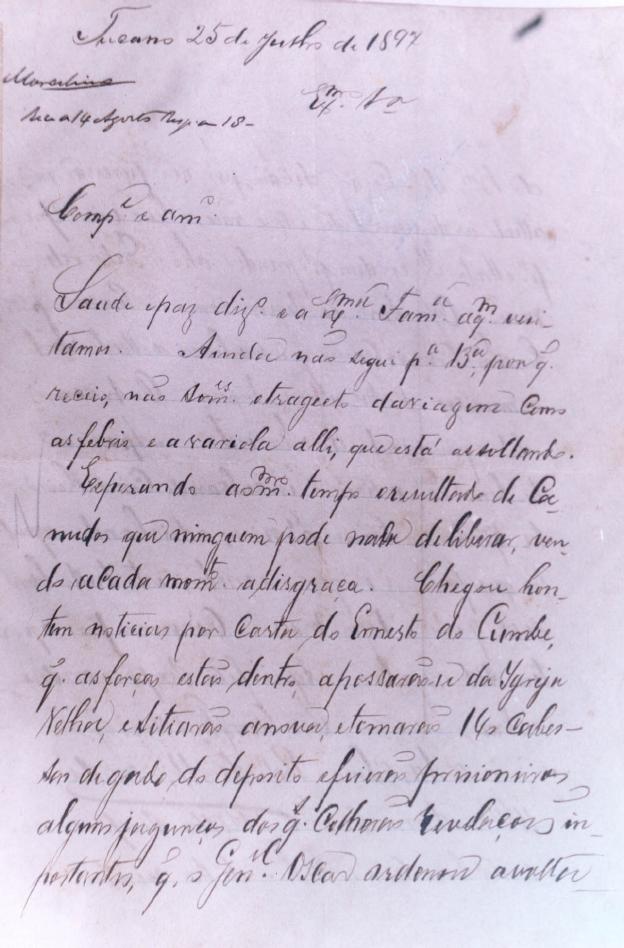 Tucano 25 de Julho de 1897
Marcelino
Rec a 14 Agosto Resp a 18-
Exm. Sr
Comp.e e am.o
Saude e paz diz.o e a Exma. Fam.a a q.m visi-
tamos. Ainda não segui p.a B.a, por q.
receio, não som.e o trageto da viagem como
as febris e a variola alli, que está assoltando.
Esperando ao m.mo tempo o resultado de Ca-
nudos que ninguem pode nada deliberar, ven-
do a cada mom.to a disgraça. Chegou hon-
tem noticias por Carta do Ernesto do Cumbe,
q. as forças estão dentro, apossarão se da Igreja
Velha, e sitiarão a nova, e tomarão 140 Cabes-
sas de gado do deposito e fiserão prisioneiros
alguns jagunços dos q.s Colherão revelações in-
portantes, q. o Gen.el Oscar ordenou a voltar